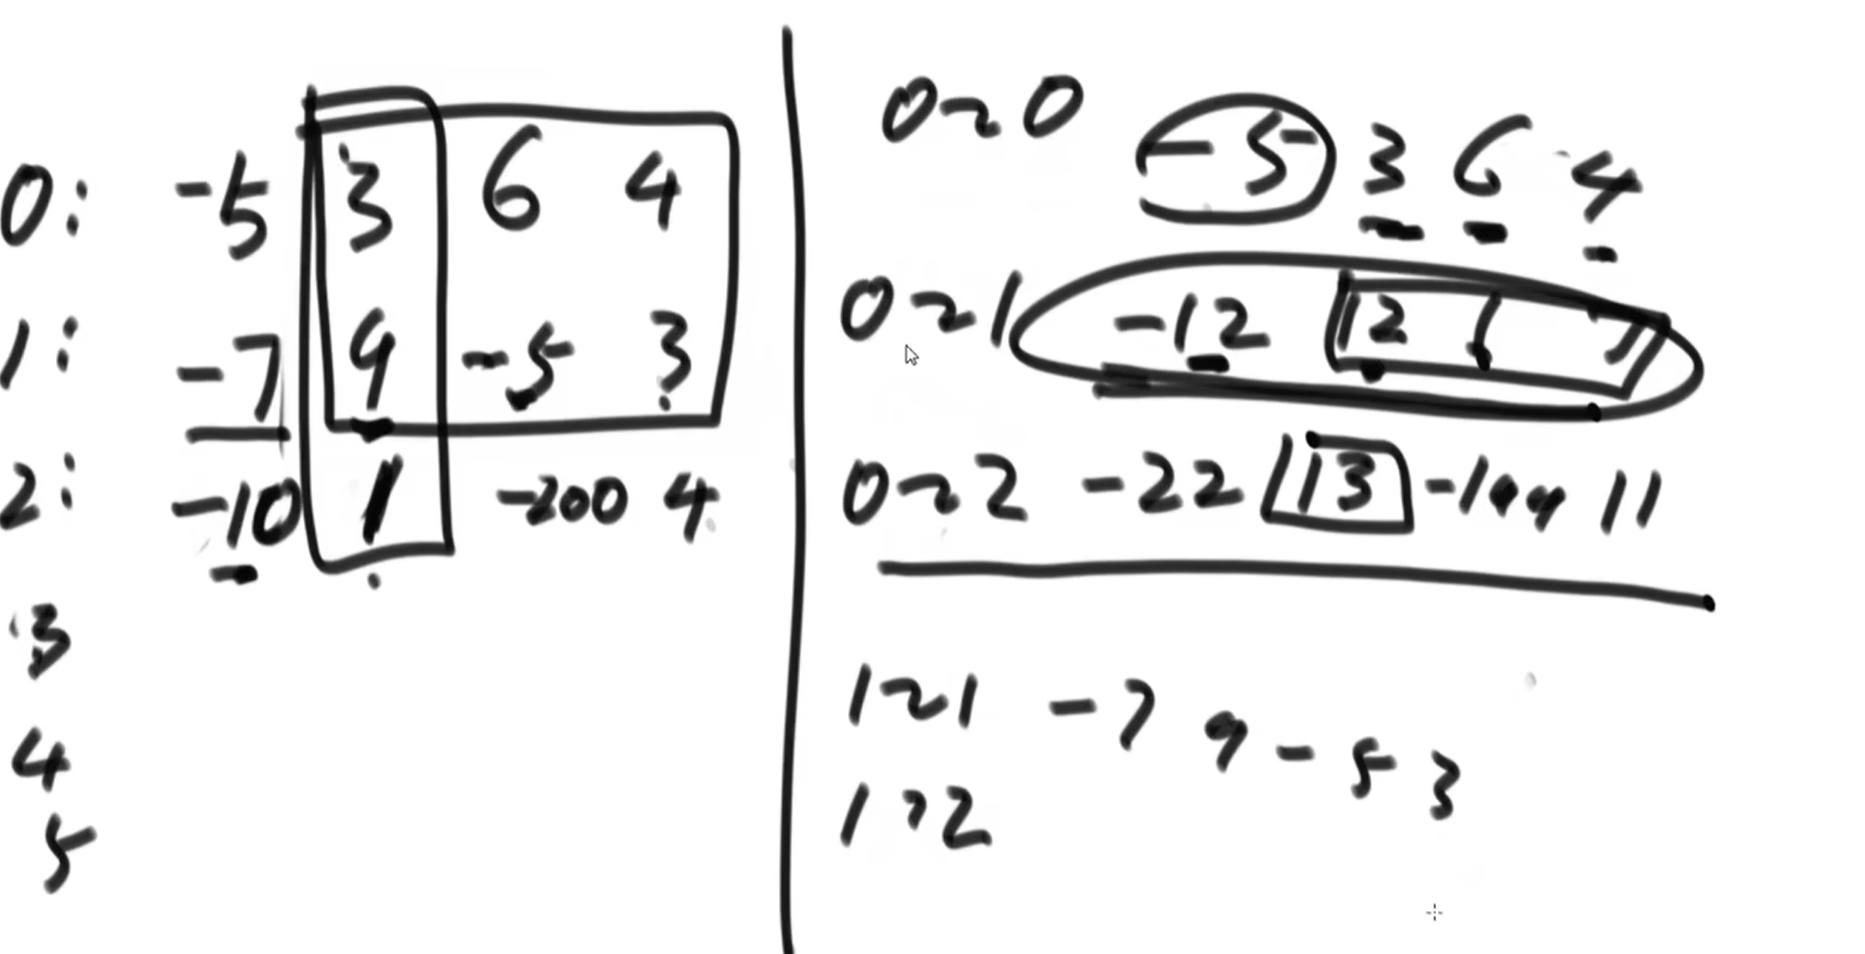 0: -5 3 6 4
1: -7 9 -5 3
2: -10 1 -200 4
3
4
5
0~0 -5 3 6 4
0~1 -12 12 1 7
0~2 -22 13 -199 11
1~1 -7 9 -5 3
1~2